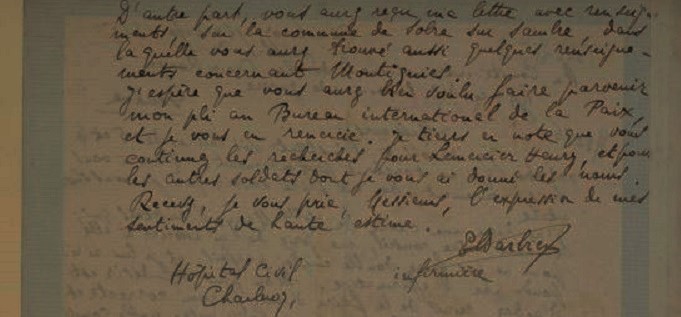 D'autre part, vous aurez reçu ma lettre avec renseig-
ments, sur la commune de Solre sur Sambre, dans
laquelle vous aurez trouvé aussi quelques renseigne-
ments concernant Montignies.
J'espère que vous aurez bien voulu faire parvenir
mon pli au Bureau international de la Paix,
et je vous en remercie. Je tiens en note que vous
continuez les recherches pour Lemercier Henry, et pour
les autres soldats dont je vous ai donné les noms.
Recevez, je vous prie, Messieurs, l'expression de mes
sentiments de haute estime.
E Barbier
Hôpital Civil infirmière
Charleroy,